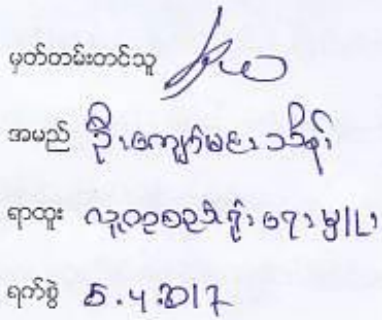 မှတ်တမ်းတင်သူ
အမည် ဦးကျော်မင်းသိန်း
ရာထူး လူဝင်မှုကြီးကြပ်ရေးမှူး
ရက်စွဲ 5.4.2017